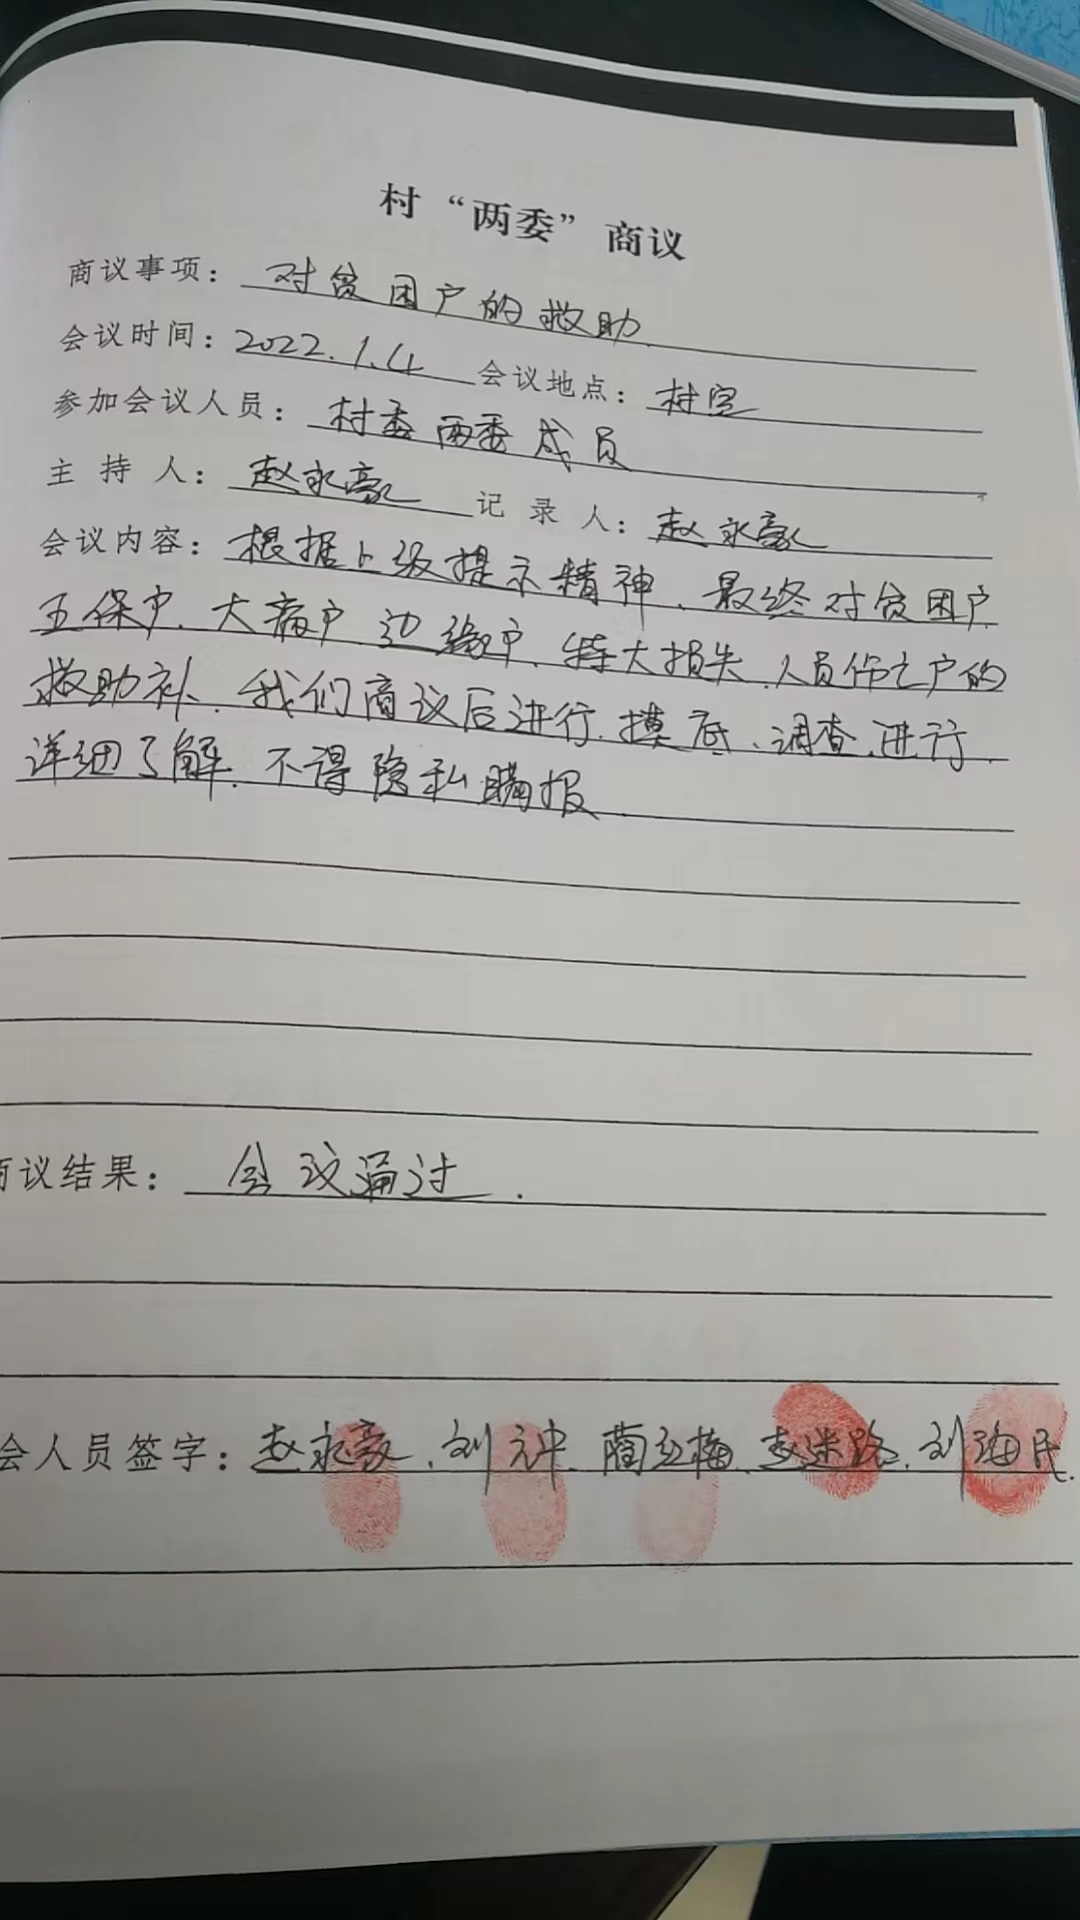 村“两委”商议
商议事项：对贫困户的救助
会议时间：2022.1.4 会议地点：村室
参加会议人员：村委两委成员
主持人：赵永豪 记录人：赵永豪
会议内容：根据上级提示精神、最终对贫困户
五保户、大病户 边缘户、特大损失、人员伤亡户的
救助补、我们商议后进行、摸底、调查、进行
详细了解、不得隐私瞒报
商议结果：会议通过.
会人员签字：赵永豪、刘 梅、赵 路、刘海民.